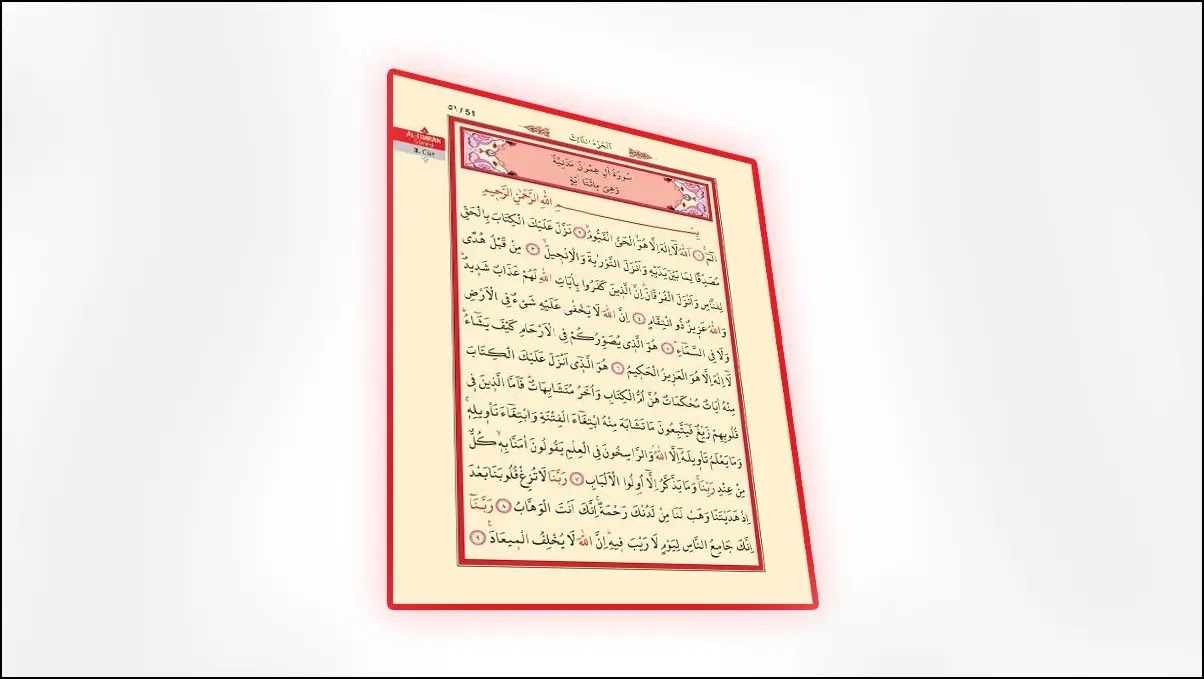 ٥١ / 51
اَلْجُزْءُ الثَّالِثُ
AL-İ İMRAN
3. Cüz
سُورَةُ اٰلِ عِمْرٰنَ مَدَنِيَّةٌ
وَهِىَ مِائَتَا اٰيَةٍ
بِسْــــــــمِ اللّٰهِ الرَّحْمٰنِ الرَّحٖيمِ
الٓمٓۚ ﴿١﴾ اَللّٰهُ لَٓا اِلٰهَ اِلَّا هُوَۙ الْحَىُّ الْقَيُّومُؕ ﴿٢﴾ نَزَّلَ عَلَيْكَ الْكِتَابَ بِالْحَقِّ
مُصَدِّقًا لِمَا بَيْنَ يَدَيْهِ وَاَنْزَلَ التَّوْرٰيةَ وَالْاِنْجٖيلَۙ ﴿٣﴾ مِنْ قَبْلُ هُدًى
لِلنَّاسِ وَاَنْزَلَ الْفُرْقَانَؕ اِنَّ الَّذٖينَ كَفَرُوا بِاٰيَاتِ اللّٰهِ لَهُمْ عَذَابٌ شَدٖيدٌؕ
وَاللّٰهُ عَزٖيزٌ ذُو انْتِقَامٍؕ ﴿٤﴾ اِنَّ اللّٰهَ لَا يَخْفٰى عَلَيْهِ شَىْءٌ فِى الْاَرْضِ
وَلَا فِى السَّمَٓاءِؕ ﴿٥﴾ هُوَ الَّذٖى يُصَوِّرُكُمْ فِى الْاَرْحَامِ كَيْفَ يَشَٓاءُؕ
لَٓا اِلٰهَ اِلَّا هُوَ الْعَزٖيزُ الْحَكٖيمُ ﴿٦﴾ هُوَ الَّذٖٓى اَنْزَلَ عَلَيْكَ الْكِتَابَ
مِنْهُ اٰيَاتٌ مُحْكَمَاتٌ هُنَّ اُمُّ الْكِتَابِ وَاُخَرُ مُتَشَابِهَاتٌؕ فَاَمَّا الَّذٖينَ فٖى
قُلُوبِهِمْ زَيْغٌ فَيَتَّبِعُونَ مَا تَشَابَهَ مِنْهُ ابْتِغَٓاءَ الْفِتْنَةِ وَابْتِغَٓاءَ تَاْوٖيلِهٖۚ
وَمَا يَعْلَمُ تَاْوٖيلَهُٓ اِلَّا اللّٰهُۘ وَالرَّاسِخُونَ فِى الْعِلْمِ يَقُولُونَ اٰمَنَّا بِهٖۙ كُلٌّ
مِنْ عِنْدِ رَبِّنَاۚ وَمَا يَذَّكَّرُ اِلَّٓا اُو۬لُوا الْاَلْبَابِ ﴿٧﴾ رَبَّنَا لَا تُزِغْ قُلُوبَنَا بَعْدَ
اِذْ هَدَيْتَنَا وَهَبْ لَنَا مِنْ لَدُنْكَ رَحْمَةًۚ اِنَّكَ اَنْتَ الْوَهَّابُ ﴿٨﴾ رَبَّنَٓا
اِنَّكَ جَامِعُ النَّاسِ لِيَوْمٍ لَا رَيْبَ فٖيهِؕ اِنَّ اللّٰهَ لَا يُخْلِفُ الْمٖيعَادَ۟ ﴿٩﴾